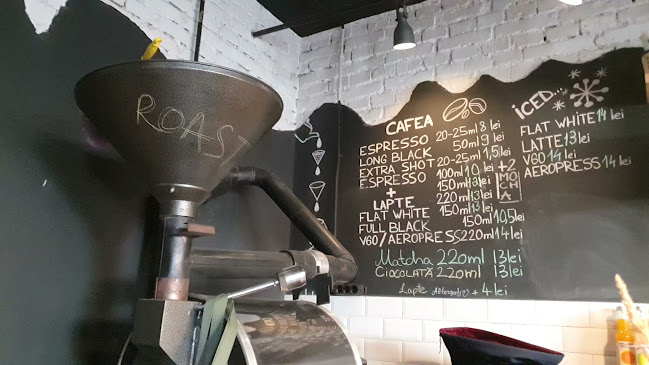 ROAST
CAFEA
ESPRESSO 20-25ml 8 lei
LONG BLACK 50ml 9 lei
EXTRA SHOT 20-25ml 1,5 lei
ESPRESSO 100ml 10 lei
+ 150ml 13 lei
LAPTE 220ml 13 lei
FLAT WHITE 150ml 13 lei
FULL BLACK 150ml 10,5 lei
V60/AEROPRESS 220ml 14 lei
+2
MOCHA
Matcha 220ml 13 lei
CIOCOLATĂ 220ml 13 lei
Lapte + 4 lei
iCED...
FLAT WHITE 14 lei
LATTE 13 lei
V60 14 lei
AEROPRESS 14 lei